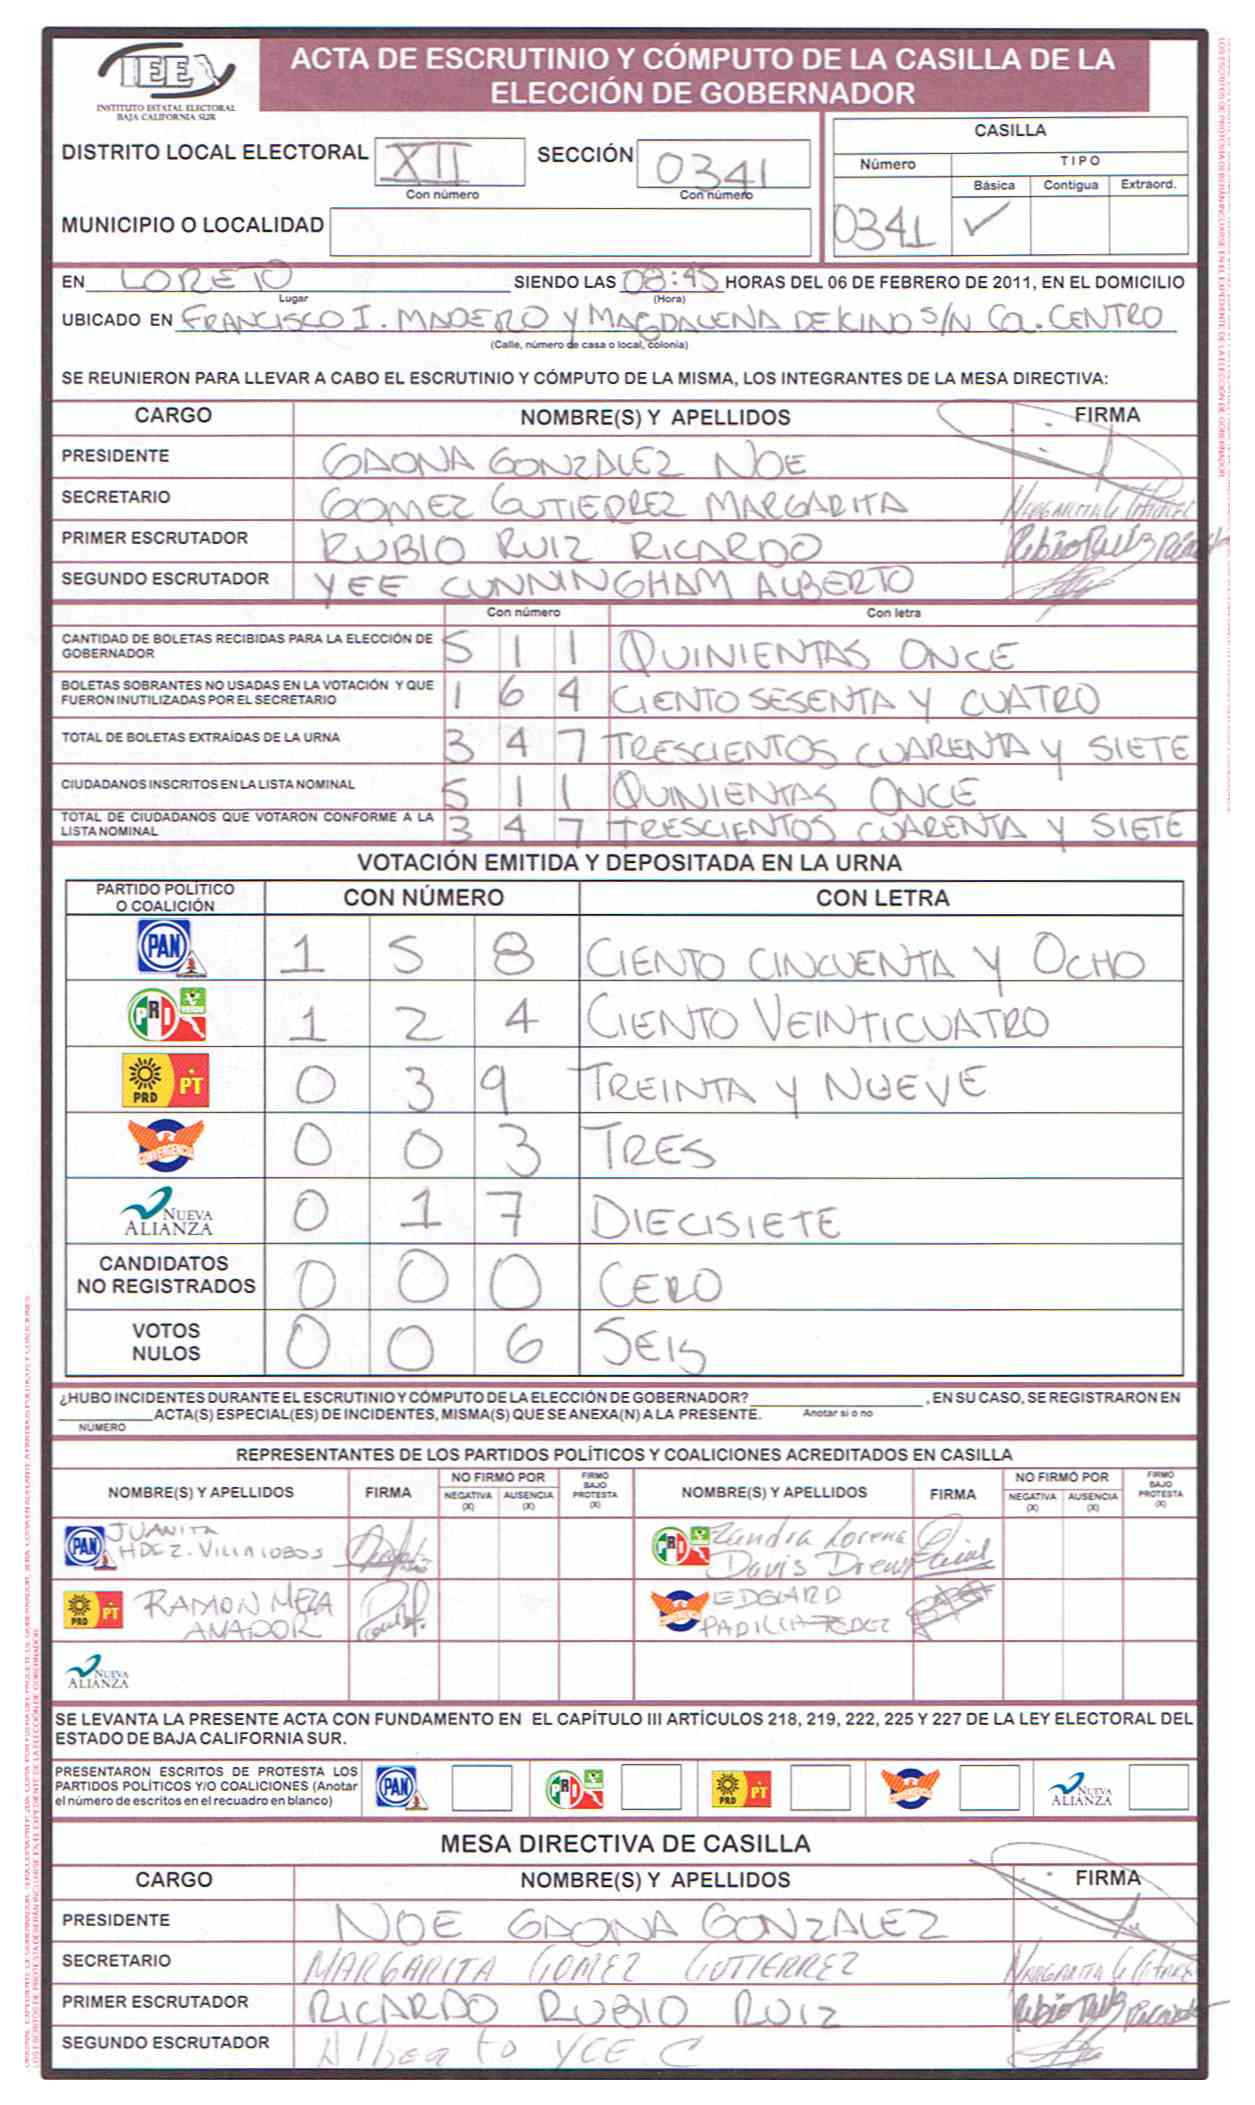 IEE
INSTITUTO ESTATAL ELECTORAL
BAJA CALIFORNIA SUR
ACTA DE ESCRUTINIO Y CÓMPUTO DE LA CASILLA DE LA
ELECCIÓN DE GOBERNADOR
DISTRITO LOCAL ELECTORAL XII SECCIÓN 0341
Con número Con número
MUNICIPIO O LOCALIDAD
CASILLA
Número TIPO
Básica Contigua Extraord.
0341 ✓
EN LORETO SIENDO LAS 08:45 HORAS DEL 06 DE FEBRERO DE 2011, EN EL DOMICILIO
Lugar (Hora)
UBICADO EN FRANCISCO I. MADERO Y MAGDALENA DE KINO S/N COL. CENTRO
(Calle, número de casa o local, colonia)
SE REUNIERON PARA LLEVAR A CABO EL ESCRUTINIO Y CÓMPUTO DE LA MISMA, LOS INTEGRANTES DE LA MESA DIRECTIVA:
CARGO NOMBRE(S) Y APELLIDOS FIRMA
PRESIDENTE GAONA GONZALEZ NOE
SECRETARIO GOMEZ GUTIERREZ MARGARITA
PRIMER ESCRUTADOR RUBIO RUIZ RICARDO
SEGUNDO ESCRUTADOR YEE CUNNINGHAM ALBERTO
Con número Con letra
CANTIDAD DE BOLETAS RECIBIDAS PARA LA ELECCIÓN DE
GOBERNADOR 5 1 1 QUINIENTAS ONCE
BOLETAS SOBRANTES NO USADAS EN LA VOTACIÓN Y QUE
FUERON INUTILIZADAS POR EL SECRETARIO 1 6 4 CIENTO SESENTA Y CUATRO
TOTAL DE BOLETAS EXTRAÍDAS DE LA URNA 3 4 7 TRESCIENTOS CUARENTA Y SIETE
CIUDADANOS INSCRITOS EN LA LISTA NOMINAL 5 1 1 QUINIENTAS ONCE
TOTAL DE CIUDADANOS QUE VOTARON CONFORME A LA
LISTA NOMINAL 3 4 7 TRESCIENTOS CUARENTA Y SIETE
VOTACIÓN EMITIDA Y DEPOSITADA EN LA URNA
PARTIDO POLÍTICO
O COALICIÓN CON NÚMERO CON LETRA
PAN 1 5 8 CIENTO CINCUENTA Y OCHO
PRI VERDE 1 2 4 CIENTO VEINTICUATRO
PRD PT 0 3 9 TREINTA Y NUEVE
CONVERGENCIA 0 0 3 TRES
NUEVA ALIANZA 0 1 7 DIECISIETE
CANDIDATOS
NO REGISTRADOS 0 0 0 CERO
VOTOS
NULOS 0 0 6 SEIS
¿HUBO INCIDENTES DURANTE EL ESCRUTINIO Y CÓMPUTO DE LA ELECCIÓN DE GOBERNADOR? , EN SU CASO, SE REGISTRARON EN
ACTA(S) ESPECIAL(ES) DE INCIDENTES, MISMA(S) QUE SE ANEXA(N) A LA PRESENTE. Anotar si o no
NÚMERO
REPRESENTANTES DE LOS PARTIDOS POLÍTICOS Y COALICIONES ACREDITADOS EN CASILLA
NOMBRE(S) Y APELLIDOS FIRMA NO FIRMÓ POR NEGATIVA (X) AUSENCIA (X) FIRMO BAJO PROTESTA (X) NOMBRE(S) Y APELLIDOS FIRMA NO FIRMÓ POR NEGATIVA (X) AUSENCIA (X) FIRMO BAJO PROTESTA (X)
PAN JUANITA
HDEZ. VILLALOBOS
PRI Zandra Lorena
Davis Drew
PRD PT RAMON MEZA
AMADOR
EDGARD
PADILLA
NUEVA ALIANZA
SE LEVANTA LA PRESENTE ACTA CON FUNDAMENTO EN EL CAPÍTULO III ARTÍCULOS 218, 219, 222, 225 Y 227 DE LA LEY ELECTORAL DEL
ESTADO DE BAJA CALIFORNIA SUR.
PRESENTARON ESCRITOS DE PROTESTA LOS
PARTIDOS POLÍTICOS Y/O COALICIONES (Anotar
el número de escritos en el recuadro en blanco) PAN PRI PRD PT NUEVA ALIANZA
MESA DIRECTIVA DE CASILLA
CARGO NOMBRE(S) Y APELLIDOS FIRMA
PRESIDENTE NOE GAONA GONZALEZ
SECRETARIO MARGARITA GOMEZ GUTIERREZ
PRIMER ESCRUTADOR RICARDO RUBIO RUIZ
SEGUNDO ESCRUTADOR Alberto YEE C